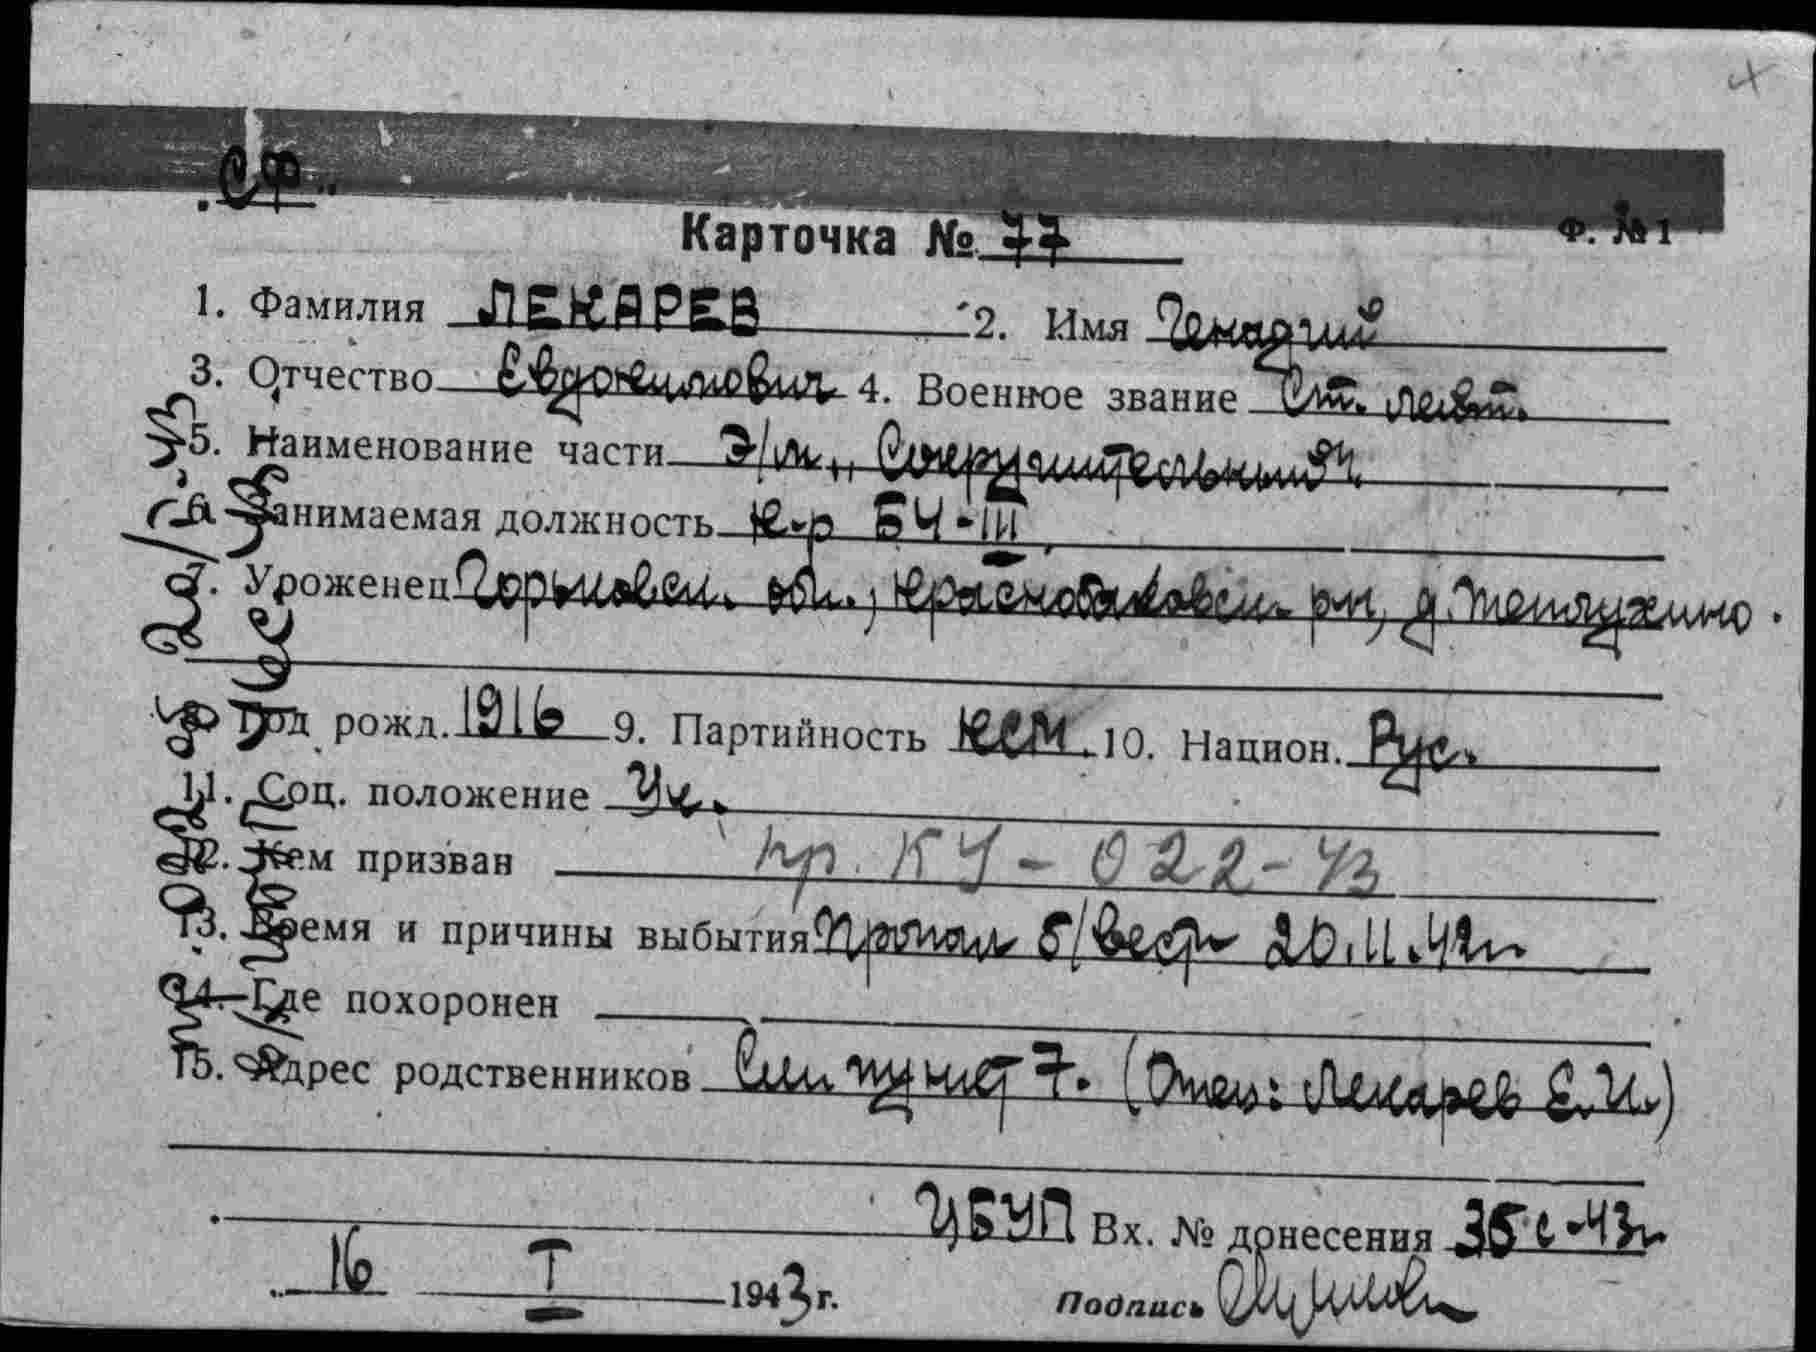 СФ
Карточка № 77 Ф. № 1
1. Фамилия ЛЕКАРЕВ 2. Имя Генадгий
3. Отчество Евдокимович 4. Военное звание Ст. лейт.
5. Наименование части Э/м „Сокрушительный“.
6. Занимаемая должность к-р БЧ-III
7. Уроженец Горьковск. обл., Краснобаковск. рн, д.
8. Год рожд. 1916 9. Партийность ВКСМ. 10. Национ. Рус.
11. Соц. положение Уч.
12. Кем призван пр. КУ-022-43
13. Время и причины выбытия Пропал б/вести 20.11.42г
14. Где похоронен
15. Адрес родственников См пункт 7. (Отец: Лекарев Е.И.)
ЦБУП Вх. № донесения 35с-43г
16 I 1943 г.
Подпись